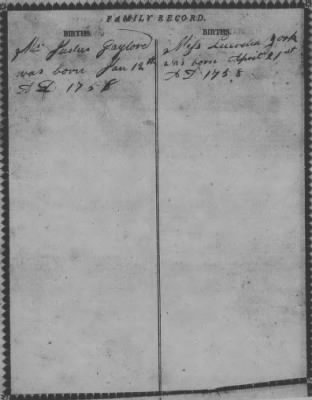 FAMILY RECORD.
BIRTHS.
Mr Justus Gaylord
was born Jan 12th
AD 1758
BIRTHS.
Miss Lucretia York
was born April 21st
AD 1758